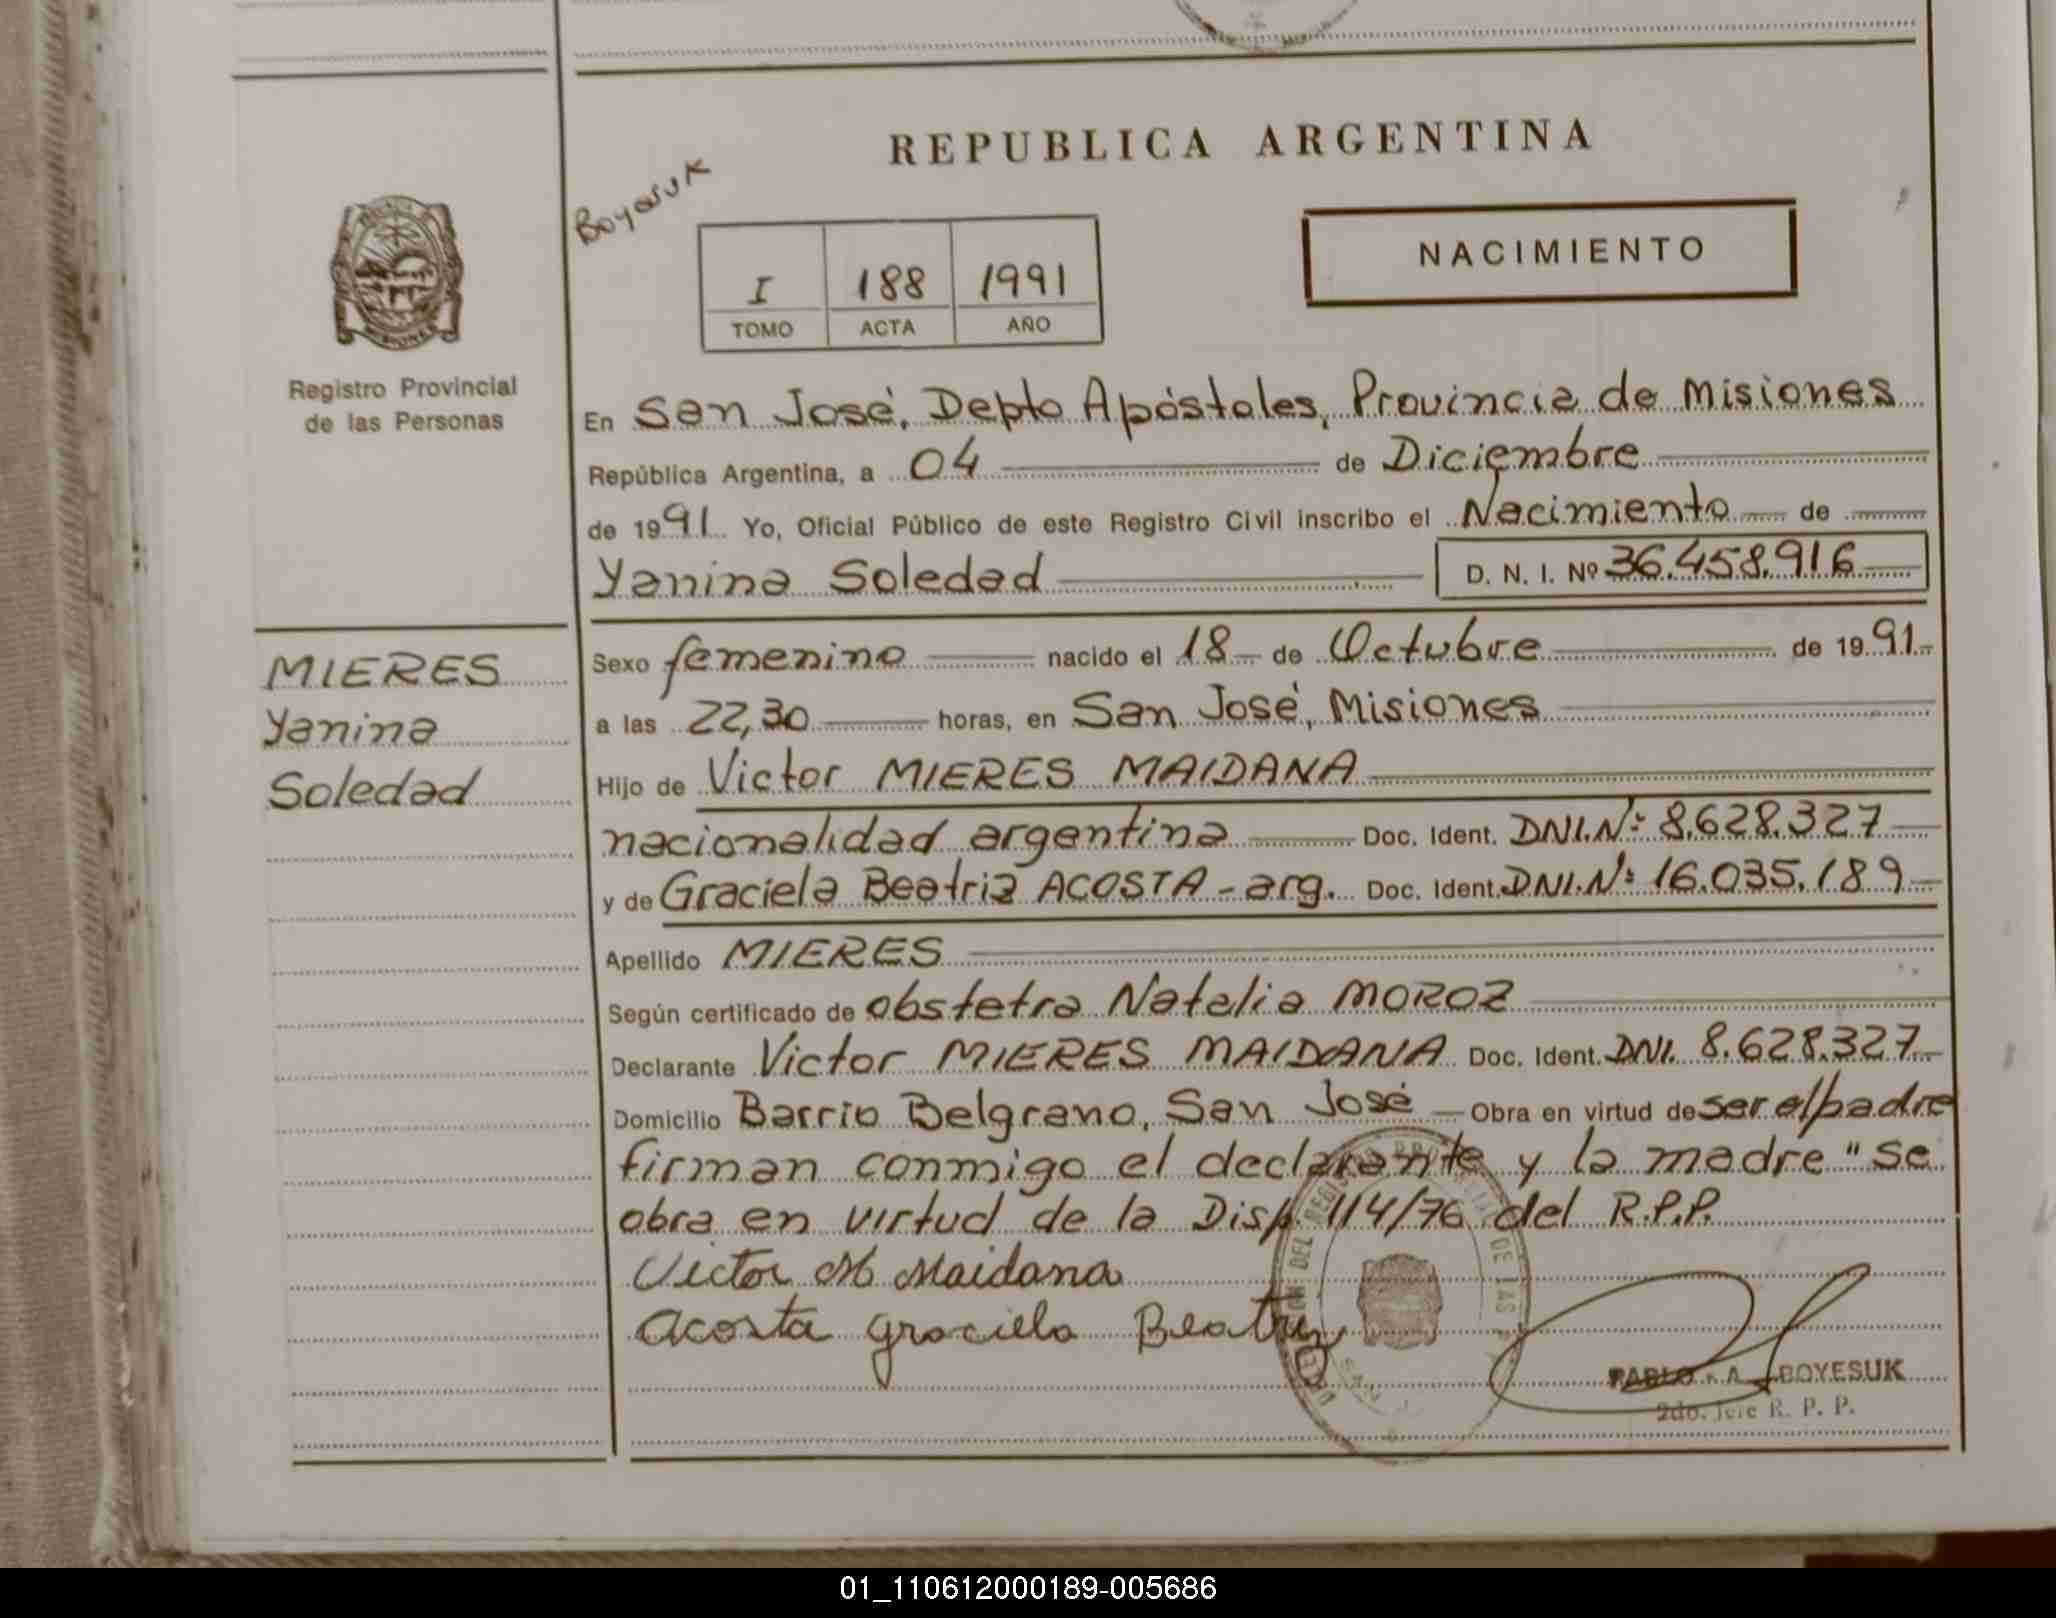 REPUBLICA ARGENTINA
Boyesuk
NACIMIENTO
I 188 1991
TOMO ACTA AÑO
MISIONES
Registro Provincial
de las Personas
MIERES
Yanina
Soledad
En San José, Depto Apóstoles, Provincia de Misiones
República Argentina, a 04 de Diciembre
de 1991 Yo, Oficial Público de este Registro Civil inscribo el Nacimiento de
Yanina Soledad D. N. I. Nº 36.458.916
Sexo femenino nacido el 18 de Octubre de 1991
a las 22,30 horas, en San José, Misiones
Hijo de Victor MIERES MAIDANA
nacionalidad argentina Doc. Ident. DNI.Nº 8.628.327
y de Graciela Beatriz ACOSTA - arg. Doc. Ident. DNI.Nº 16.035.189
Apellido MIERES
Según certificado de obstetra Natalia MOROZ
Declarante Victor MIERES MAIDANA Doc. Ident. DNI. 8.628.327
Domicilio Barrio Belgrano, San José Obra en virtud de ser el padre
firman conmigo el declarante y la madre " Se
obra en virtud de la Disp. 114/76 del R.P.P.
Victor M Maidana
Acosta Graciela Beatriz
PABLO A. BOYESUK
2do. Jefe R. P. P.
01_110612000189-005686